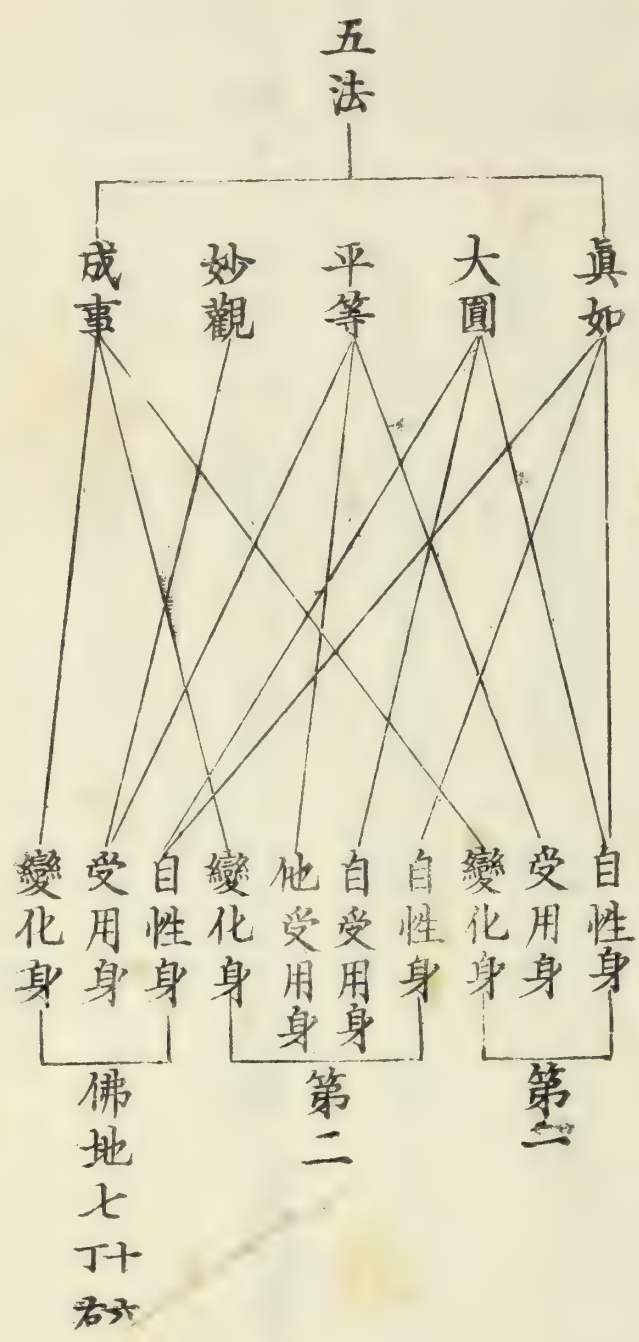 五法
眞如
大圓
平等
妙觀
成事
自性身
受用身
變化身
自性身
自受用身
他受用身
變化身
自性身
受用身
變化身
第
第二
佛地七
十六
丁右